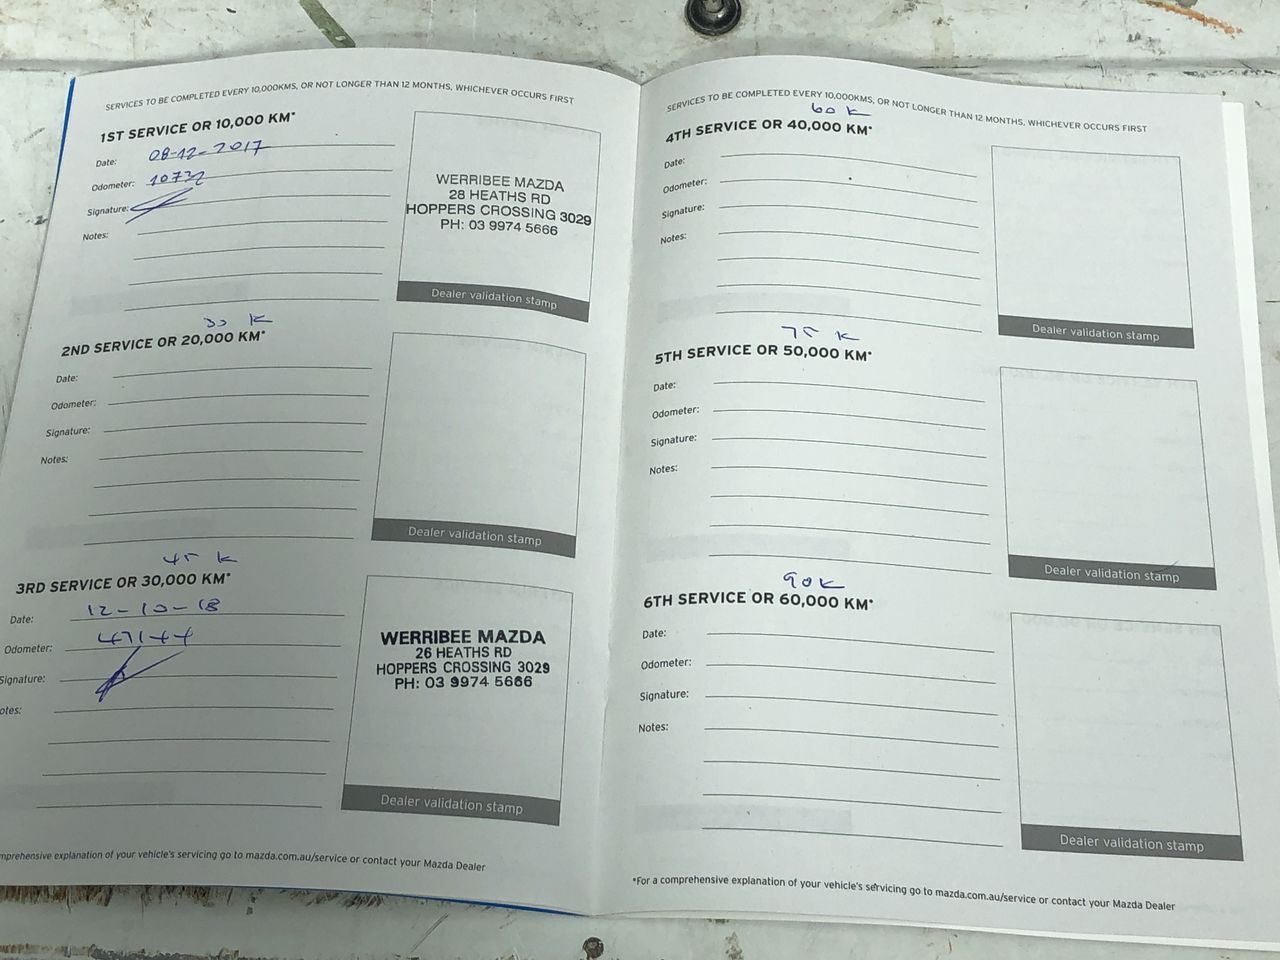 SERVICES TO BE COMPLETED EVERY 10,000KMS, OR NOT LONGER THAN 12 MONTHS, WHICHEVER OCCURS FIRST
1ST SERVICE OR 10,000 KM*
Date: 08-12-2017
Odometer:
Signature:
Notes:
WERRIBEE MAZDA
28 HEATHS RD
HOPPERS CROSSING 3029
PH: 03 9974 5666
Dealer validation stamp
30 K
2ND SERVICE OR 20,000 KM*
Date:
Odometer:
Signature:
Notes:
Dealer validation stamp
45 K
3RD SERVICE OR 30,000 KM*
Date: 12-10-18
Odometer: 47144
Signature:
otes:
WERRIBEE MAZDA
26 HEATHS RD
HOPPERS CROSSING 3029
PH: 03 9974 5666
Dealer validation stamp
mprehensive explanation of your vehicle's servicing go to mazda.com.au/service or contact your Mazda Dealer
SERVICES TO BE COMPLETED EVERY 10,000KMS, OR NOT LONGER THAN 12 MONTHS, WHICHEVER OCCURS FIRST
60 K
4TH SERVICE OR 40,000 KM*
Date:
Odometer:
Signature:
Notes:
Dealer validation stamp
75 K
5TH SERVICE OR 50,000 KM*
Date:
Odometer:
Signature:
Notes:
Dealer validation stamp
90K
6TH SERVICE OR 60,000 KM*
Date:
Odometer:
Signature:
Notes:
Dealer validation stamp
*For a comprehensive explanation of your vehicle's servicing go to mazda.com.au/service or contact your Mazda Dealer